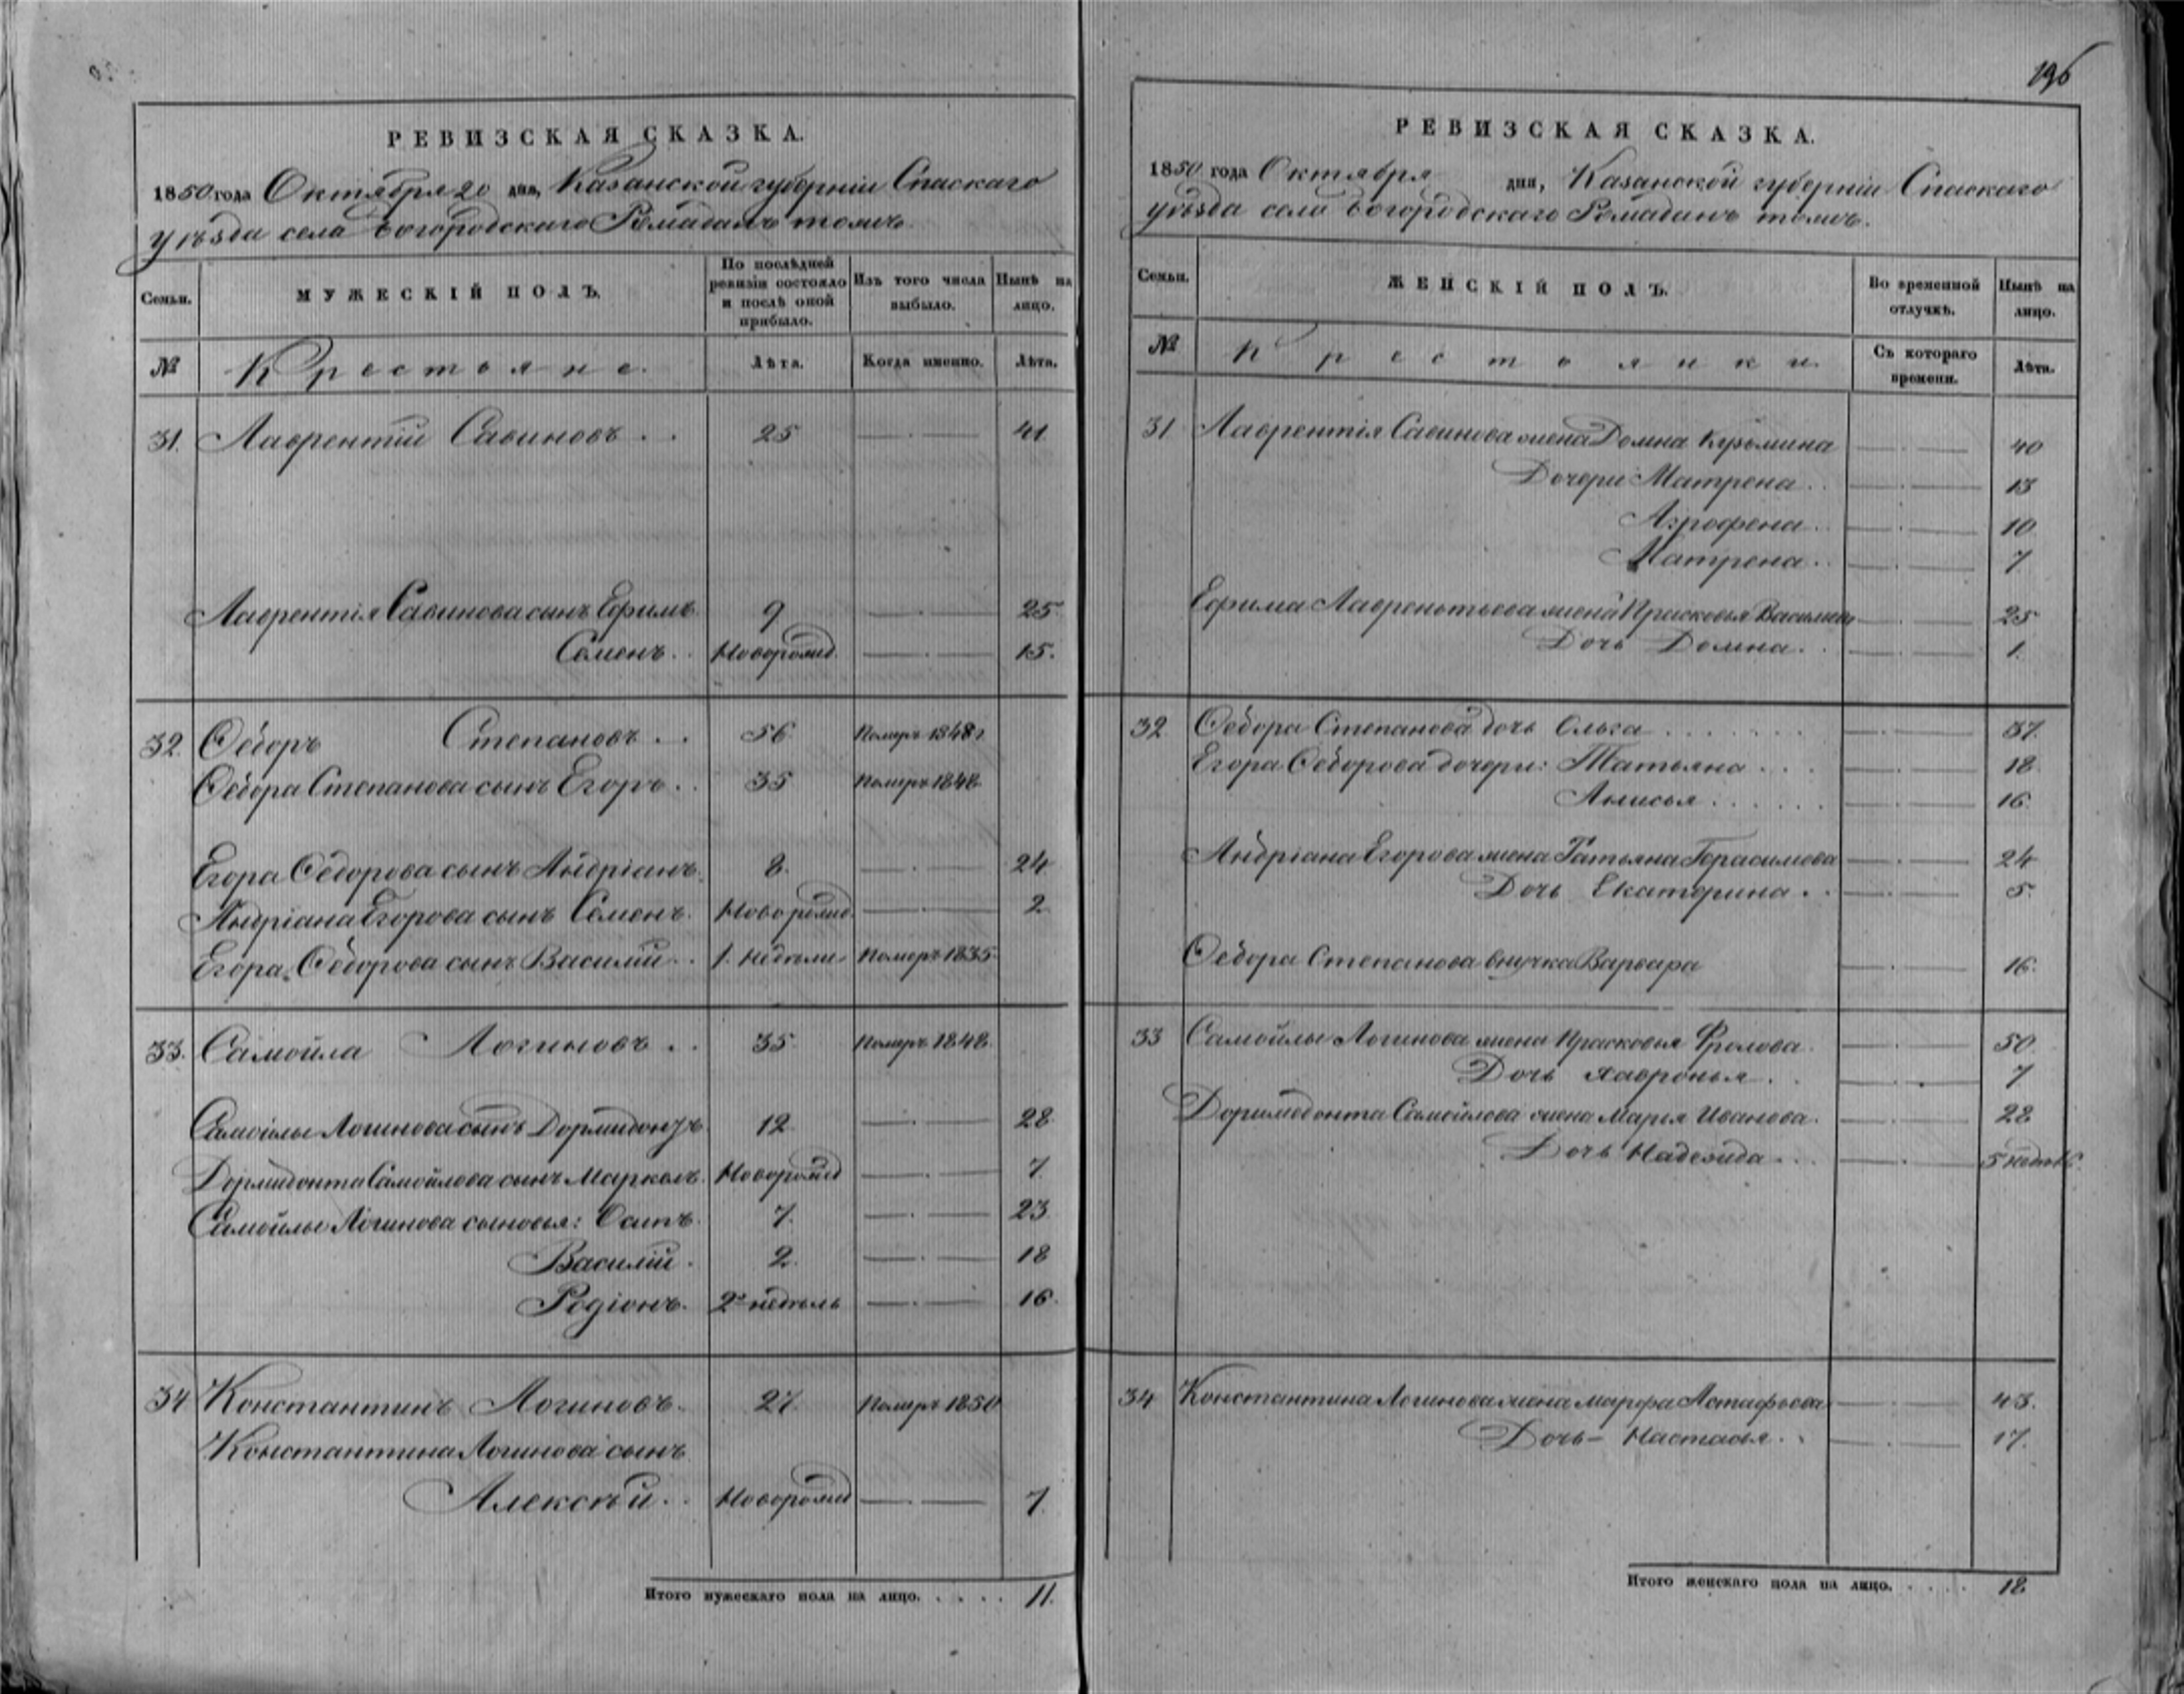 196
РЕВИЗСКАЯ СКАЗКА.
1850 года Октября 20 дня, Казанской губерніи Спаскаго
уѣзда села Богородскаго Ромаданъ тожъ.
Семьи. МУЖЕСКІЙ ПОЛЪ. По послѣдней ревизіи состояло и послѣ оной прибыло. Изъ того числа выбыло. Нынѣ на лицо.
№ Крестьяне. Лѣта. Когда именно. Лѣта.
31. Лаврентій Савиновъ . . 25 41
Лаврентія Савинова сынъ Ефимъ 9 25.
Семенъ . . Новорожд. 15.
32. Ѳедоръ Степановъ . . 56 Померъ 1848 г.
Ѳедора Степанова сынъ Егоръ . . 35 Померъ 1848
Егора Ѳедорова сынъ Андріанъ. 8. 24
Андріана Егорова сынъ Семенъ. Новорожд. 2
Егора Ѳедорова сынъ Василій . . 1. недѣли Померъ 1835
33. Самойла Логиновъ . . 35 Померъ 1848.
Самойлы Логинова сынъ Дормидонтъ 12 28
Дормидонта Самойлова сынъ Маркелъ. Новорожд 7.
Самойлы Логинова сыновья: Осипъ. 7. 23.
Василій. 2. 18
Родіонъ. 2х недѣль 16.
34 Константинъ Логиновъ. 27. Померъ 1850
Константина Логинова сынъ
Алексѣй . . Новорожд 7.
Итого мужескаго пола на лицо. . . . . 11.
РЕВИЗСКАЯ СКАЗКА.
1850 года Октября дня, Казанской губерніи Спаскаго
уѣзда села Богородскаго Ромаданъ тожъ.
Семьи. ЖЕНСКІЙ ПОЛЪ. Во временной отлучкѣ. Нынѣ на лицо.
№ Крестьянки. Съ котораго времени. Лѣта.
31 Лаврентія Савинова жена Домна Кузьмина 40
Дочери Матрена . . 13
Агрофена . . 10
Матрена . . 7
Ефима Лаврентьева жена Прасковья Васильева 25
Дочь Домна . . 1.
32 Ѳедора Степанова дочь Ольга . . . . . . . 37.
Егора Ѳедорова дочери: Татьяна . . . 18
Анисья . . . . . . 16.
Андріана Егорова жена Татьяна Герасимова 24
Дочь Екатерина . . 5.
Ѳедора Степанова внучка Варвара 16.
33 Самойлы Логинова жена Прасковья Фролова. 50.
Дочь Хавронья . . 7
Дормедонта Самойлова жена Марья Иванова. 28
Дочь Надежда . . . 5 недѣль.
34 Константина Логинова жена Марфа Астафьева 43.
Дочь – Настасья . . 17.
Итого женскаго пола на лицо. . . . . 18